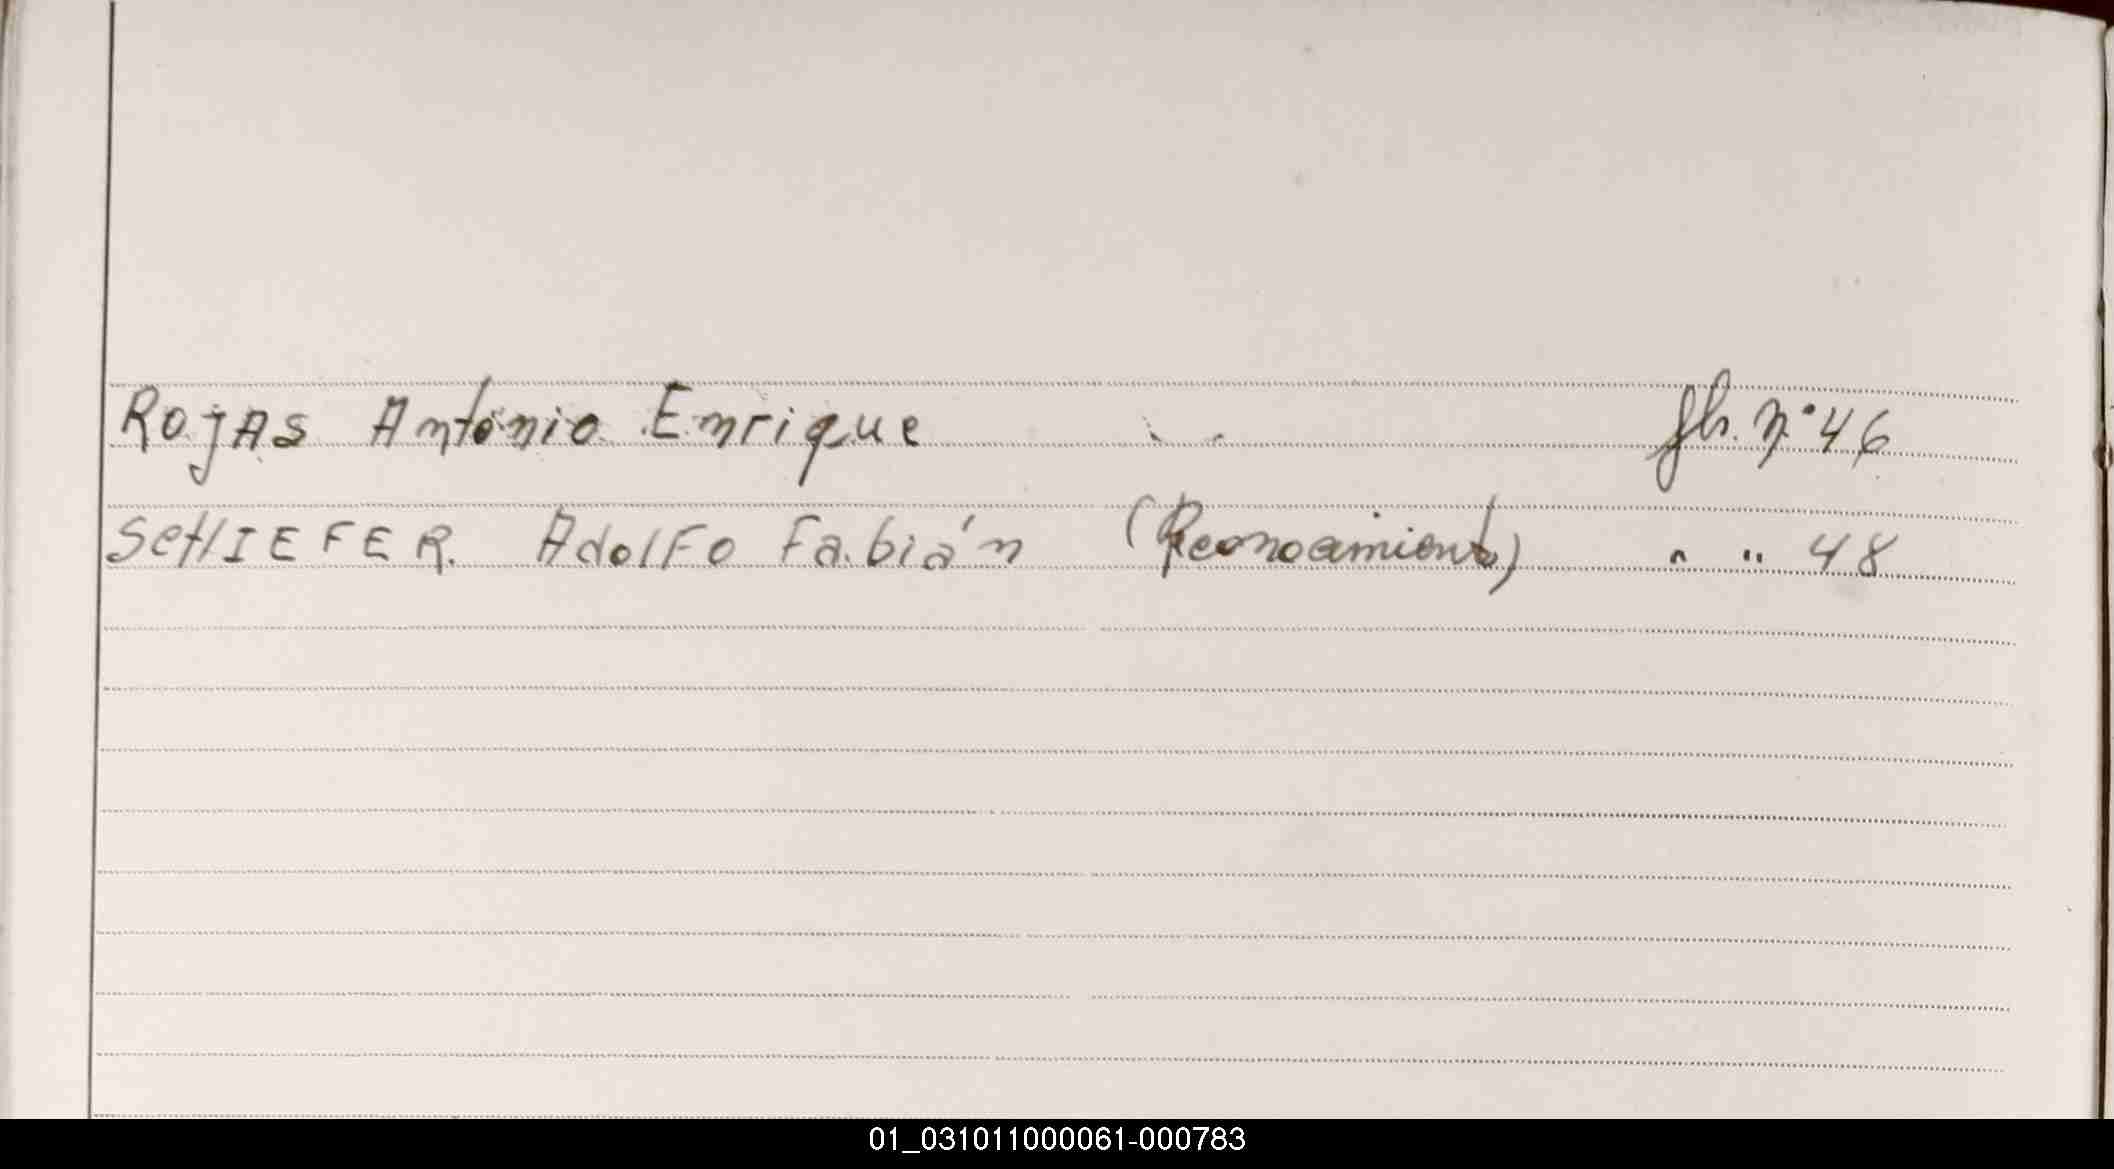 Rojas Antonio Enrique fls. Nº 46
SCHIEFER. Adolfo Fabián (Reconocimiento) " " 48
01_031011000061-000783